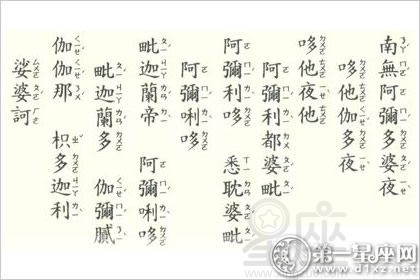 南無阿彌多婆夜
哆他伽多夜
哆他夜他
阿彌利都婆毗
阿彌利哆 悉耽婆毗
阿彌唎哆
毗迦蘭帝 阿彌唎哆
毗迦蘭多 伽彌膩
伽伽那 枳多迦利
娑婆訶
第一星座网
www.d1xz.net